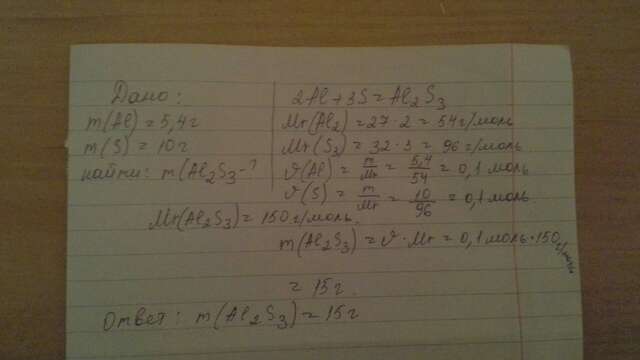 Дано:
m(Al) = 5,4г
m(S) = 10г
найти: m(Al2S3-?
2Al+3S=Al2S3
Mr(Al2) = 27·2 = 54г/моль
Mr(S3) = 32·3 = 96г/моль
ϑ(Al) = m/Mr = 5,4/54 = 0,1 моль
ϑ(S) = m/Mr = 10/96 = 0,1 моль.
Mr(Al2S3) = 150г/моль.
m(Al2S3) = ϑ·Mr = 0,1 моль·150г/моль
= 15г.
Ответ: m(Al2S3) = 15г